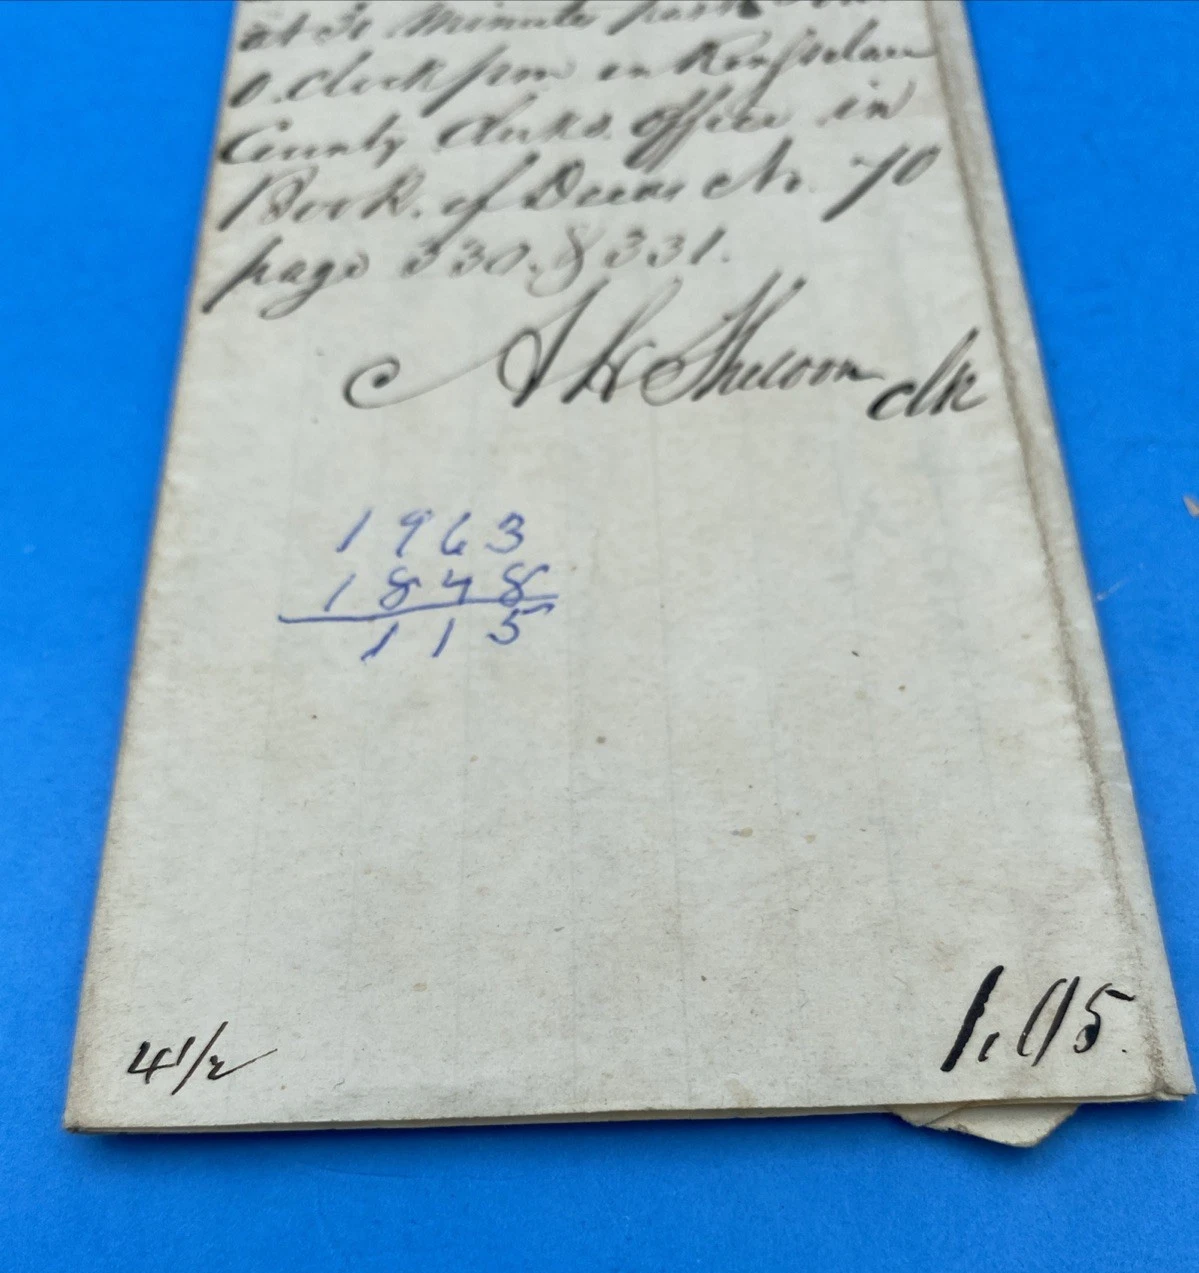 at 30 Minutes past
O.Clock pm in Rensselaer
County Clerks. Office in
Book. of Deeds No. 70
page 330. & 331.
clk
1963
1848
115
4 1/2
1.05.